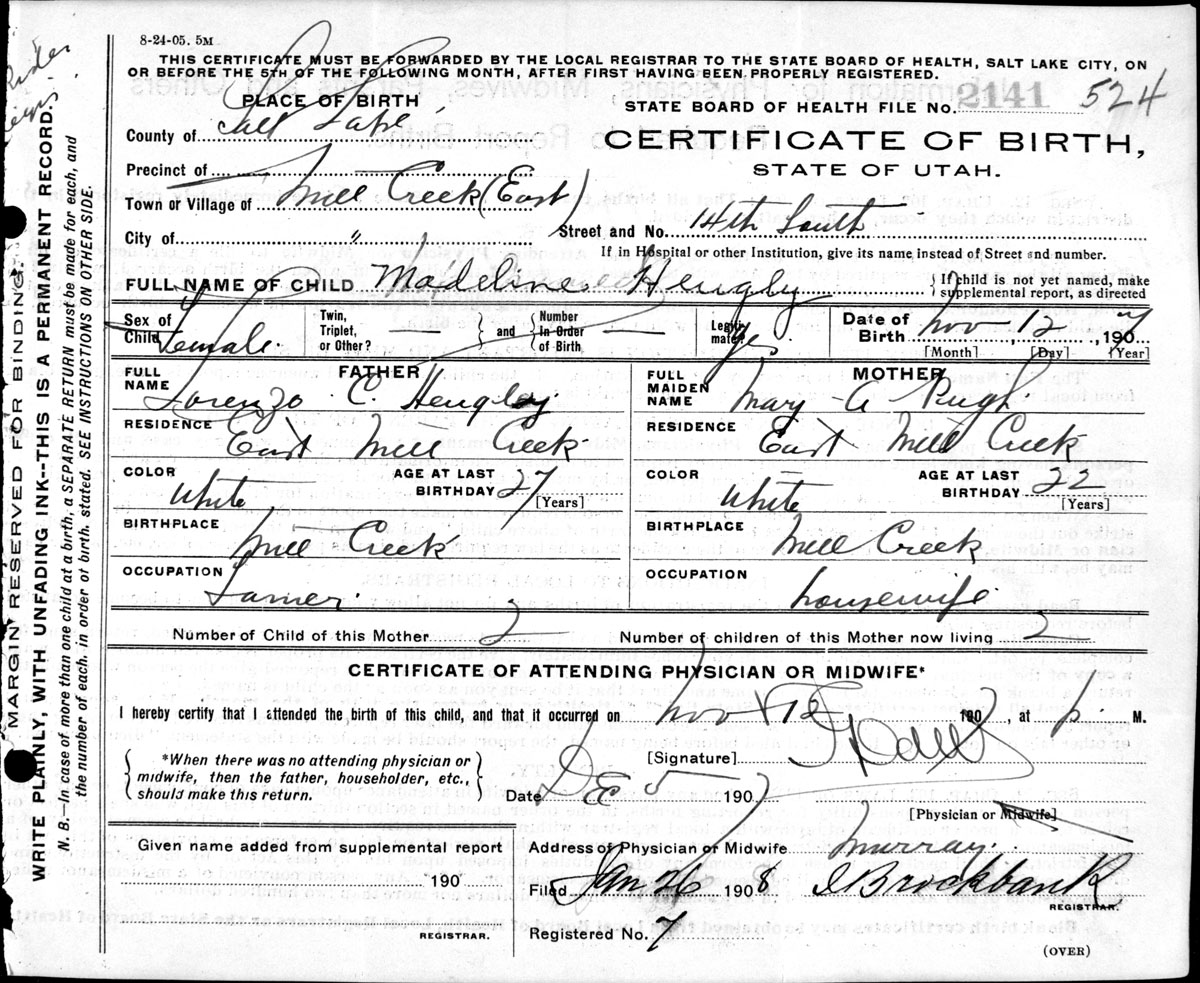 8-24-05. 5M
THIS CERTIFICATE MUST BE FORWARDED BY THE LOCAL REGISTRAR TO THE STATE BOARD OF HEALTH, SALT LAKE CITY, ON
OR BEFORE THE 5TH OF THE FOLLOWING MONTH, AFTER FIRST HAVING BEEN PROPERLY REGISTERED.
PLACE OF BIRTH
STATE BOARD OF HEALTH FILE No. 2141 524
County of Salt Lake
CERTIFICATE OF BIRTH,
STATE OF UTAH.
Precinct of
Town or Village of Mill Creek (East)
City of "
Street and No. 14th South
If in Hospital or other Institution, give its name instead of Street and number.
FULL NAME OF CHILD Madeline Heugly
{ If child is not yet named, make
supplemental report, as directed
Sex of Child Female
Twin, Triplet, or Other? —
{ and } Number in Order of Birth —
Legitimate? Yes
Date of Birth Nov 12, 1907
[Month] [Day] [Year]
FATHER
FULL NAME Lorenzo C. Heugley
RESIDENCE East Mill Creek
COLOR White
AGE AT LAST BIRTHDAY 27
[Years]
BIRTHPLACE Mill Creek
OCCUPATION Farmer.
MOTHER
FULL MAIDEN NAME Mary A Pugh
RESIDENCE East Mill Creek
COLOR White
AGE AT LAST BIRTHDAY 22
[Years]
BIRTHPLACE Mill Creek
OCCUPATION housewife
Number of Child of this Mother 2
Number of children of this Mother now living 2
CERTIFICATE OF ATTENDING PHYSICIAN OR MIDWIFE*
I hereby certify that I attended the birth of this child, and that it occurred on Nov 12 1907, at P. M.
{ *When there was no attending physician or
midwife, then the father, householder, etc.,
should make this return. }
[Signature]
Date DEC 5 1907
[Physician or Midwife]
Given name added from supplemental report
190
REGISTRAR.
Address of Physician or Midwife Murray.
Filed Jan 26 1908 Brockbank
REGISTRAR.
Registered No. 7
(OVER)
MARGIN RESERVED FOR BINDING.
WRITE PLAINLY, WITH UNFADING INK--THIS IS A PERMANENT RECORD.
N. B.—In case of more than one child at a birth, a SEPARATE RETURN must be made for each, and
the number of each, in order of birth, stated. SEE INSTRUCTIONS ON OTHER SIDE.